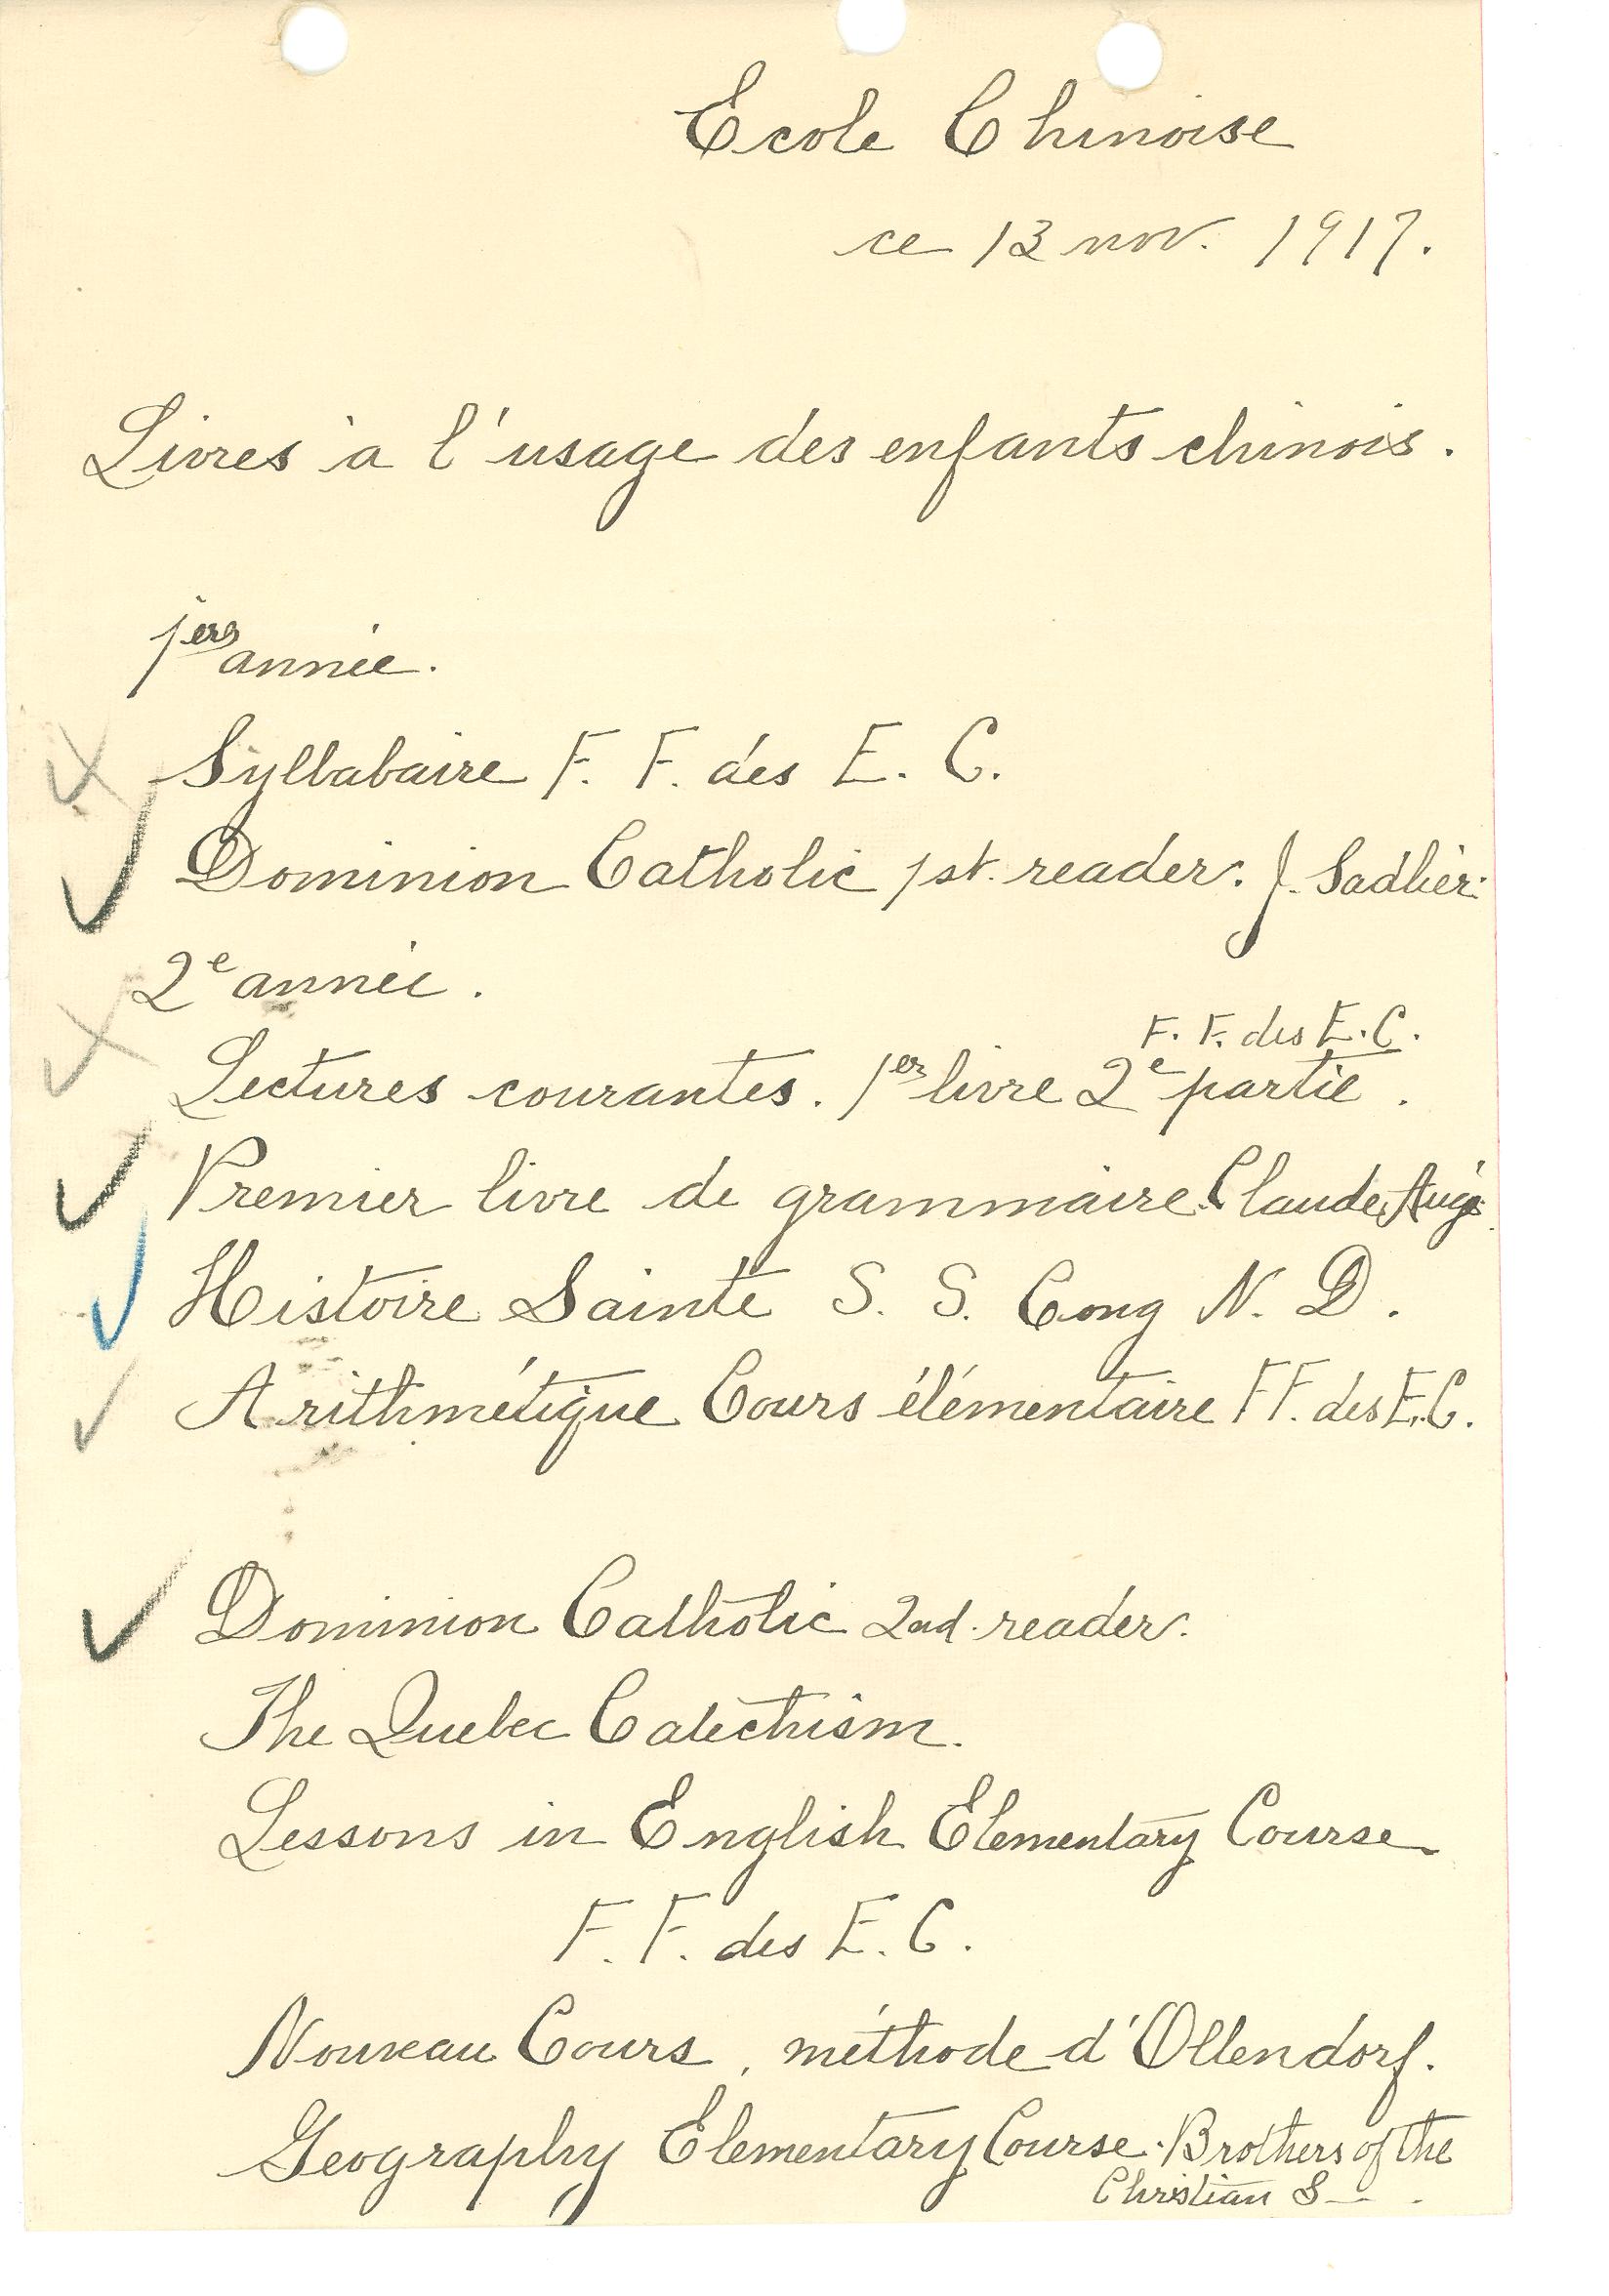 Ecole Chinoise
ce 13 nov. 1917.
Livres à l'usage des enfants chinois.
1ère année.
Syllabaire F. F. des E. C.
Dominion Catholic 1st. reader. J. Sadlier.
2e année.
F. F. des E. C.
Lectures courantes. 1er livre 2e partie.
Premier livre de grammaire. Claude Augé
Histoire Sainte S. S. Cong N. D.
Arithmétique Cours élémentaire F F. des E. C.
Dominion Catholic 2nd. reader.
The Quebec Catechism.
Lessons in English Elementary Course
F. F. des E. C.
Nouveau Cours, méthode d'Ollendorf.
Geography Elementary Course. Brothers of the
Christian S—.